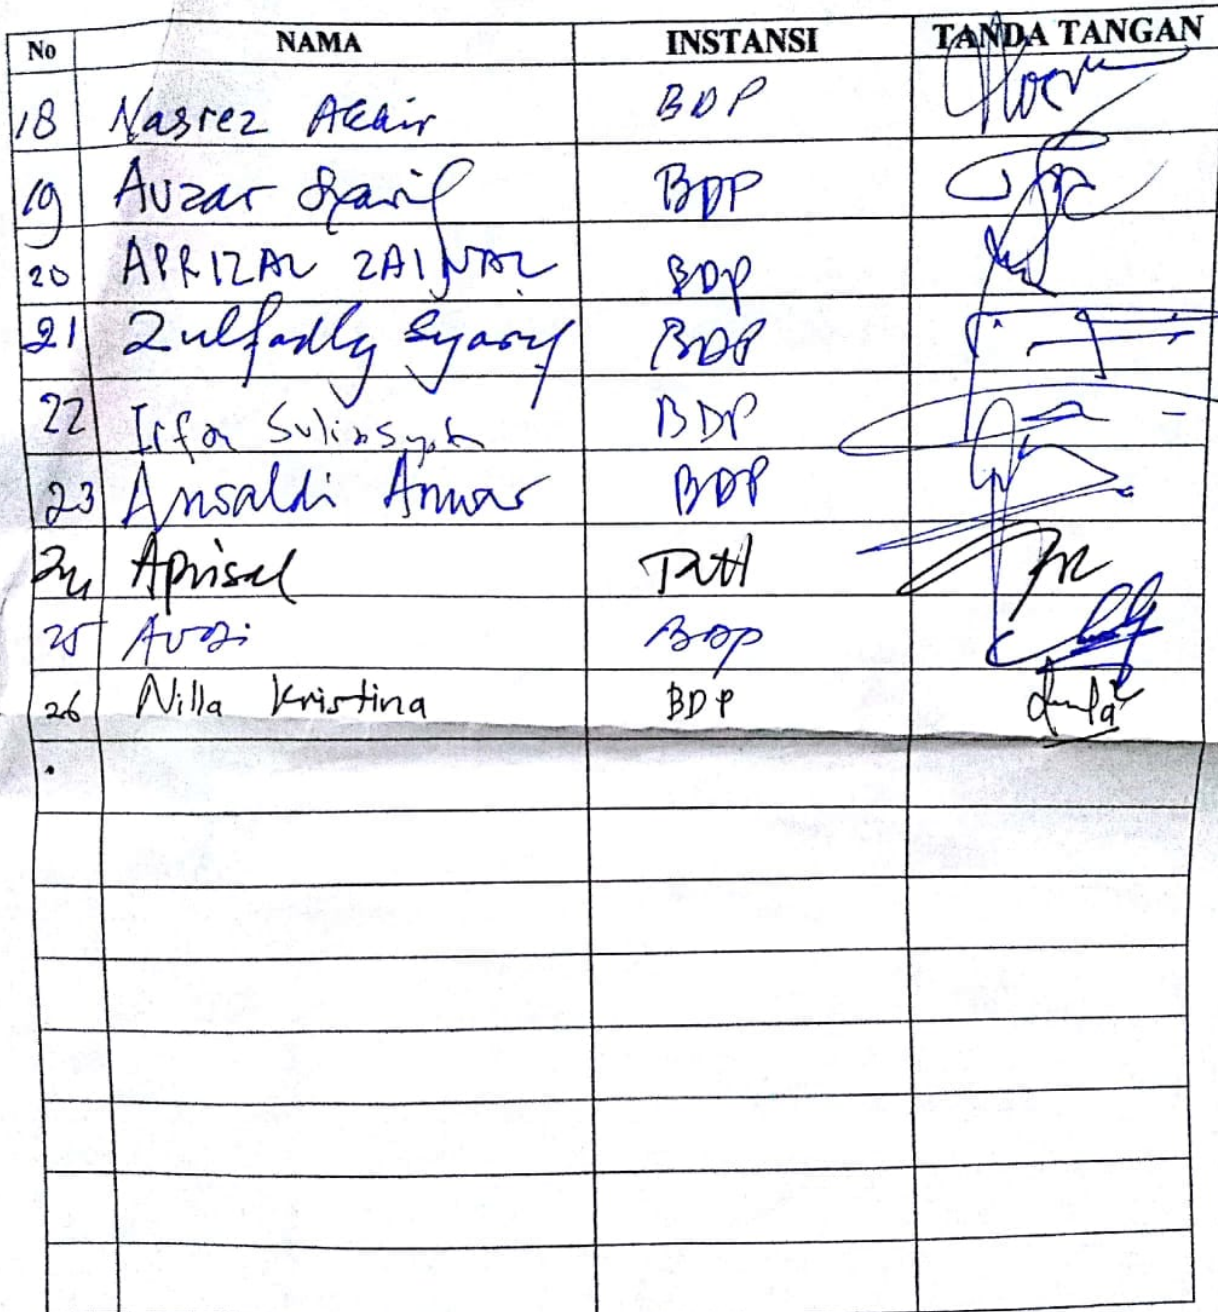 No NAMA INSTANSI TANDA TANGAN
18 Nasrez Akhir BDP
19 Auzar Syarif BDP
20 APRIZAL ZAINAL BDP
21 Zulfadly Syarif BDP
22 Irfan BDP
23 Ansaldi Anwar BDP
24 Aprisal
25 BDP
26 Nilla Kristina BDP